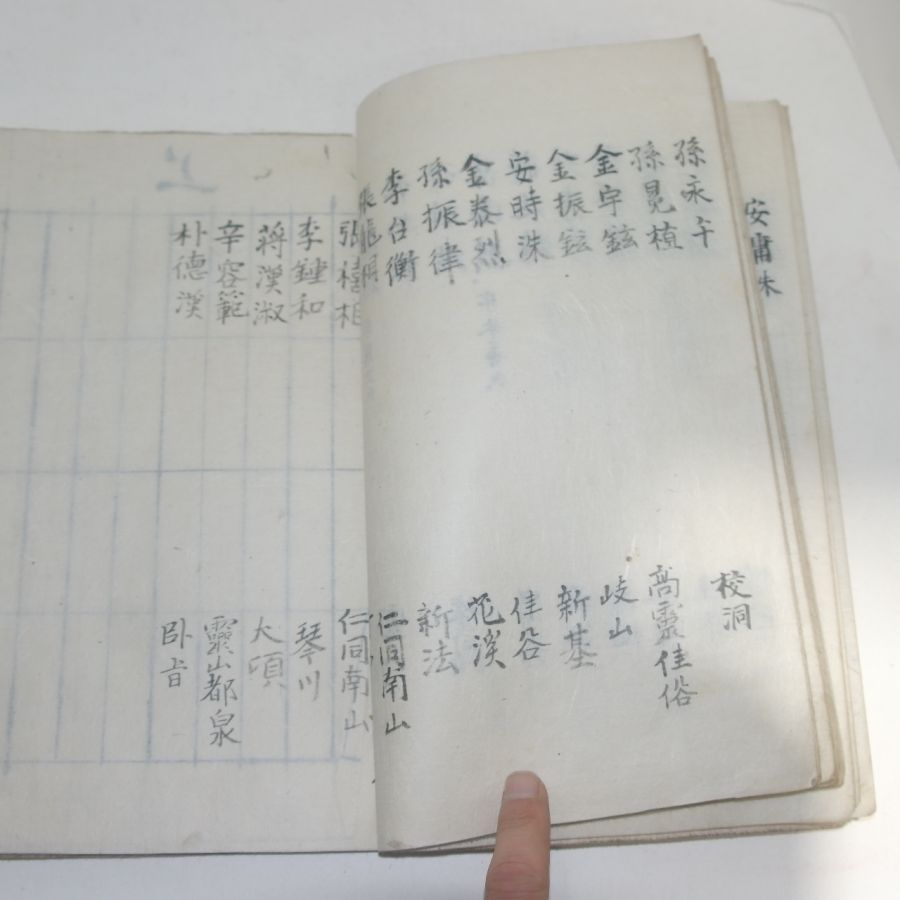 安庸洙
孫永午
校洞
孫晃植
高靈佳俗
金宇鉉
岐山
金振鉉
新基
安時洙
佳谷
金泰烈
花溪
孫振律
新法
李台衡
仁同南山
張
張禧相
仁同南山
李鍾和
琴川
蔣漢淑
大項
辛容範
靈山都泉
朴德漢
卧旨